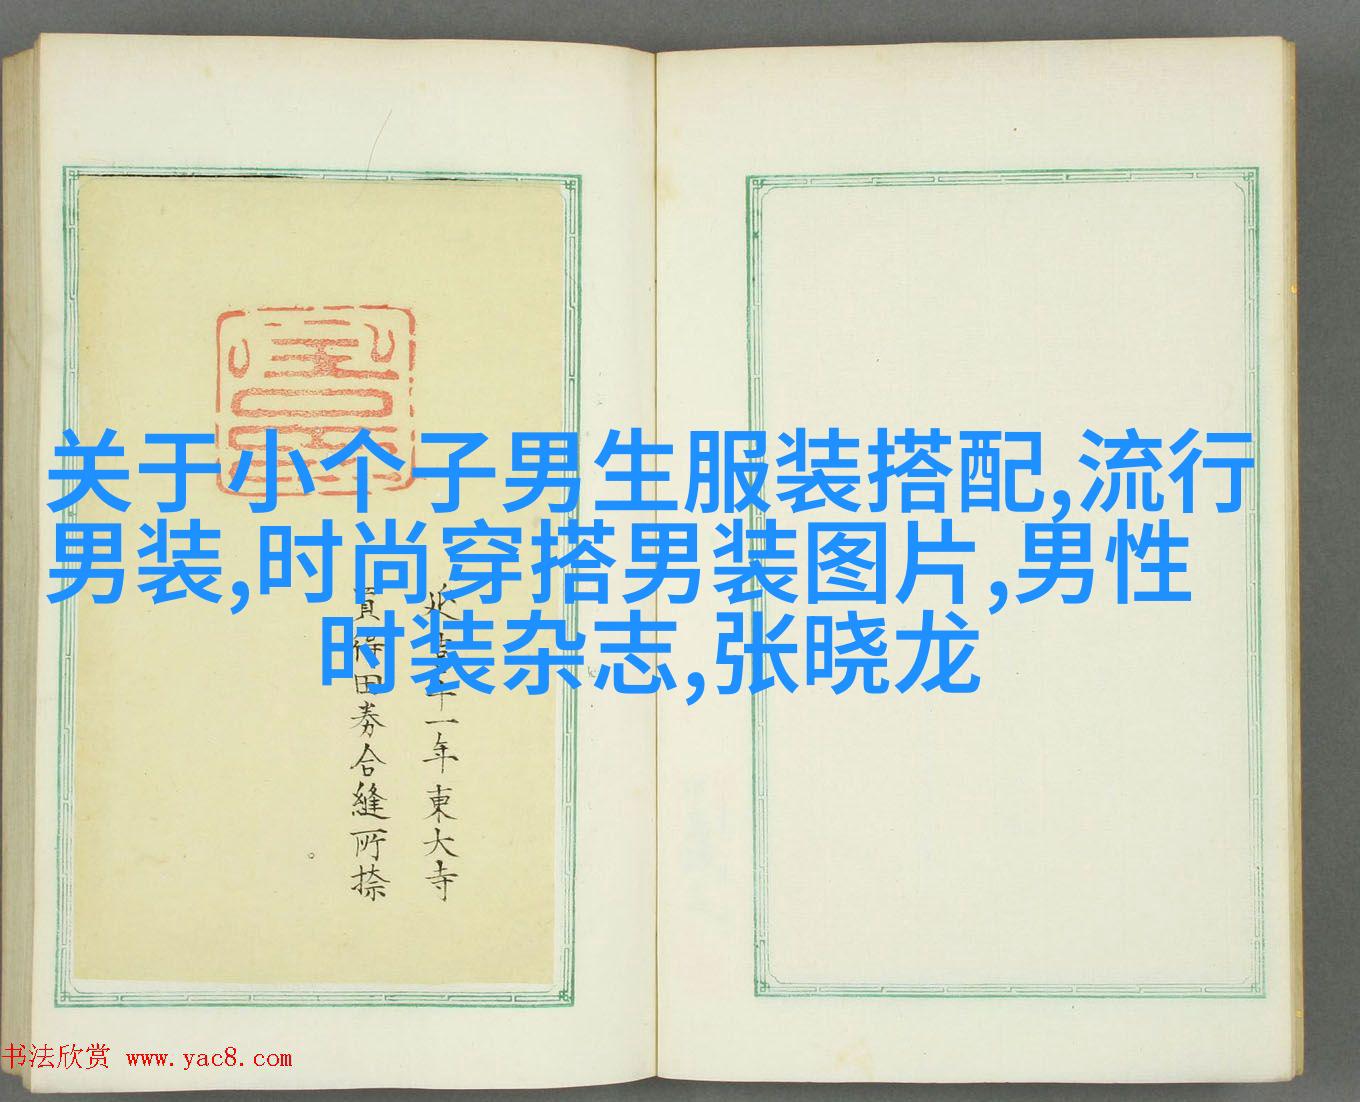 关于小个子男生服装搭配,流行
男装,时尚穿搭男装图片,男性
时装杂志,张晓龙
年一年東大寺
田券合縫所捺
书法欣赏 www.yac8.com